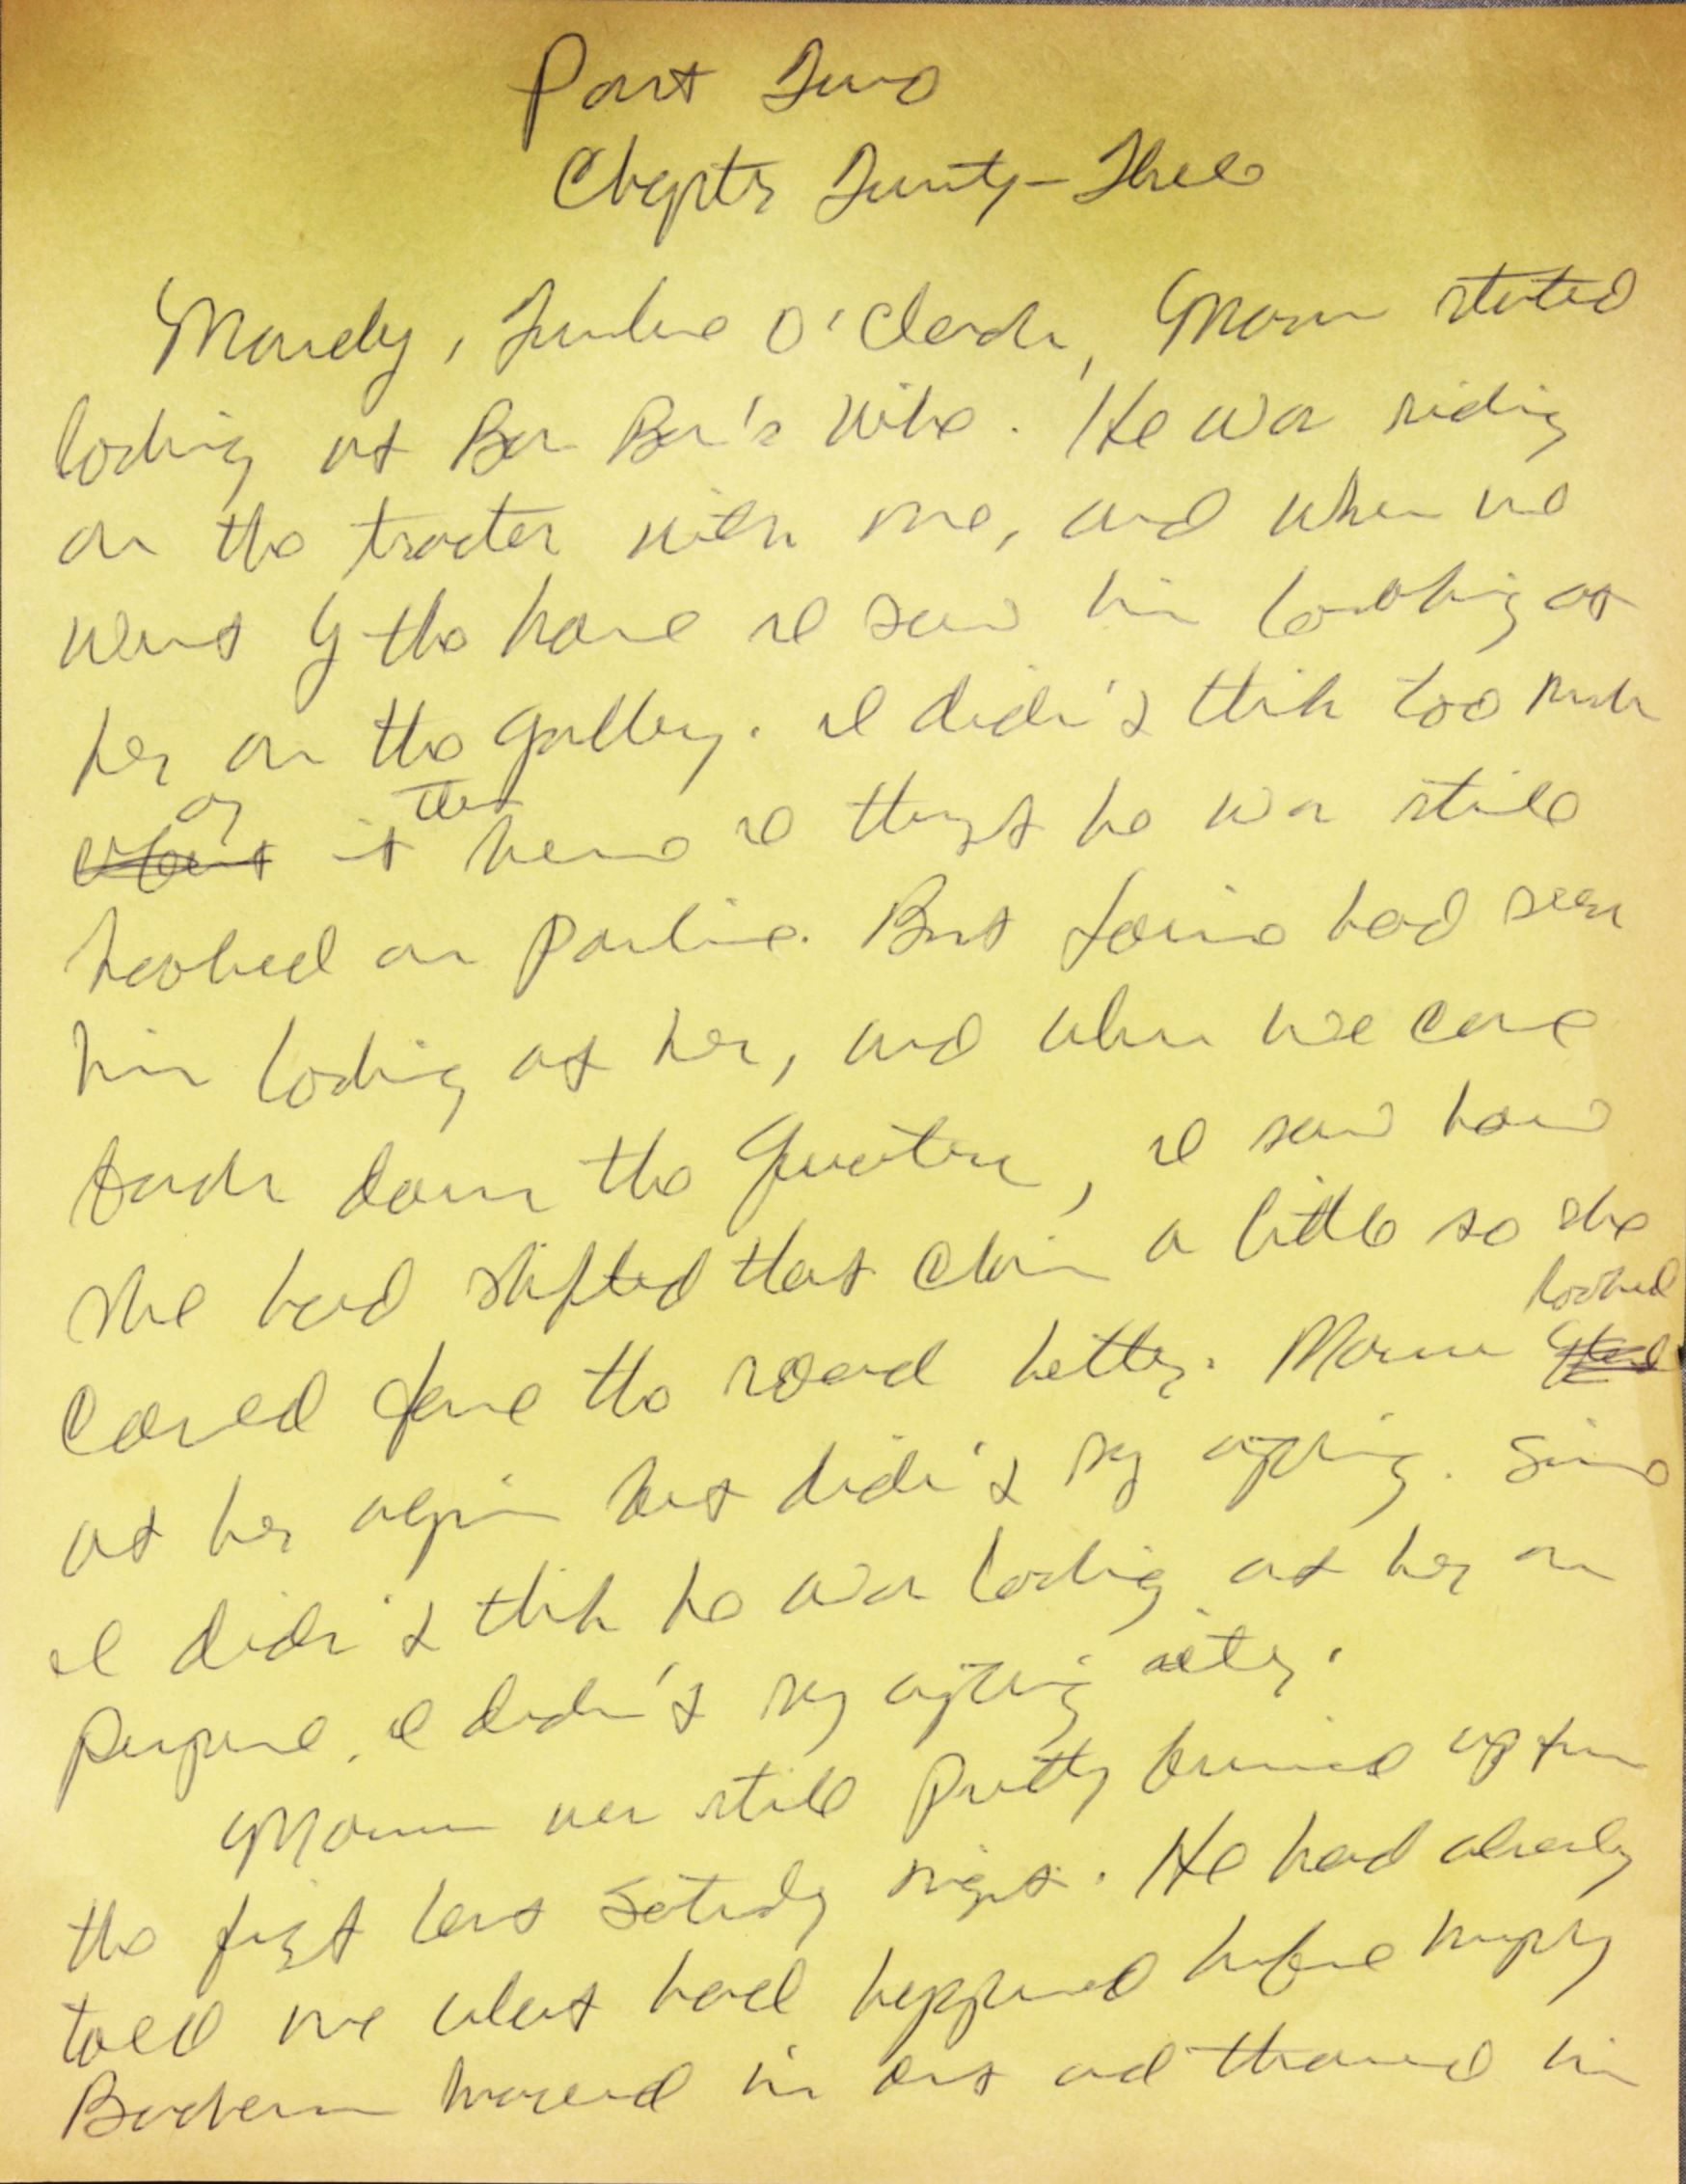 Part Two
Chapter Twenty-Three
Monday, Twelve O'Clock, Marcus started
looking at Bon Bon's wife. He was riding
on the tractor with me, and when we
went by the house I saw him looking at
her on the gallery. I didn't think too much
of
about it then because I thought he was still
hooked on Pauline. But Louise had seen
him looking at her, and when we came
back down the quarters, I saw how
she had shifted that chair a little so she
looked
could face the road better. Marcus
at her again but didn't say anything. Since
I didn't think he was looking at her on
purpose, I didn't say anything either.
Marcus was still pretty bruised up from
the fight last Saturday night. He had already
told me what had happened before Murphy
Bacheron moved in and